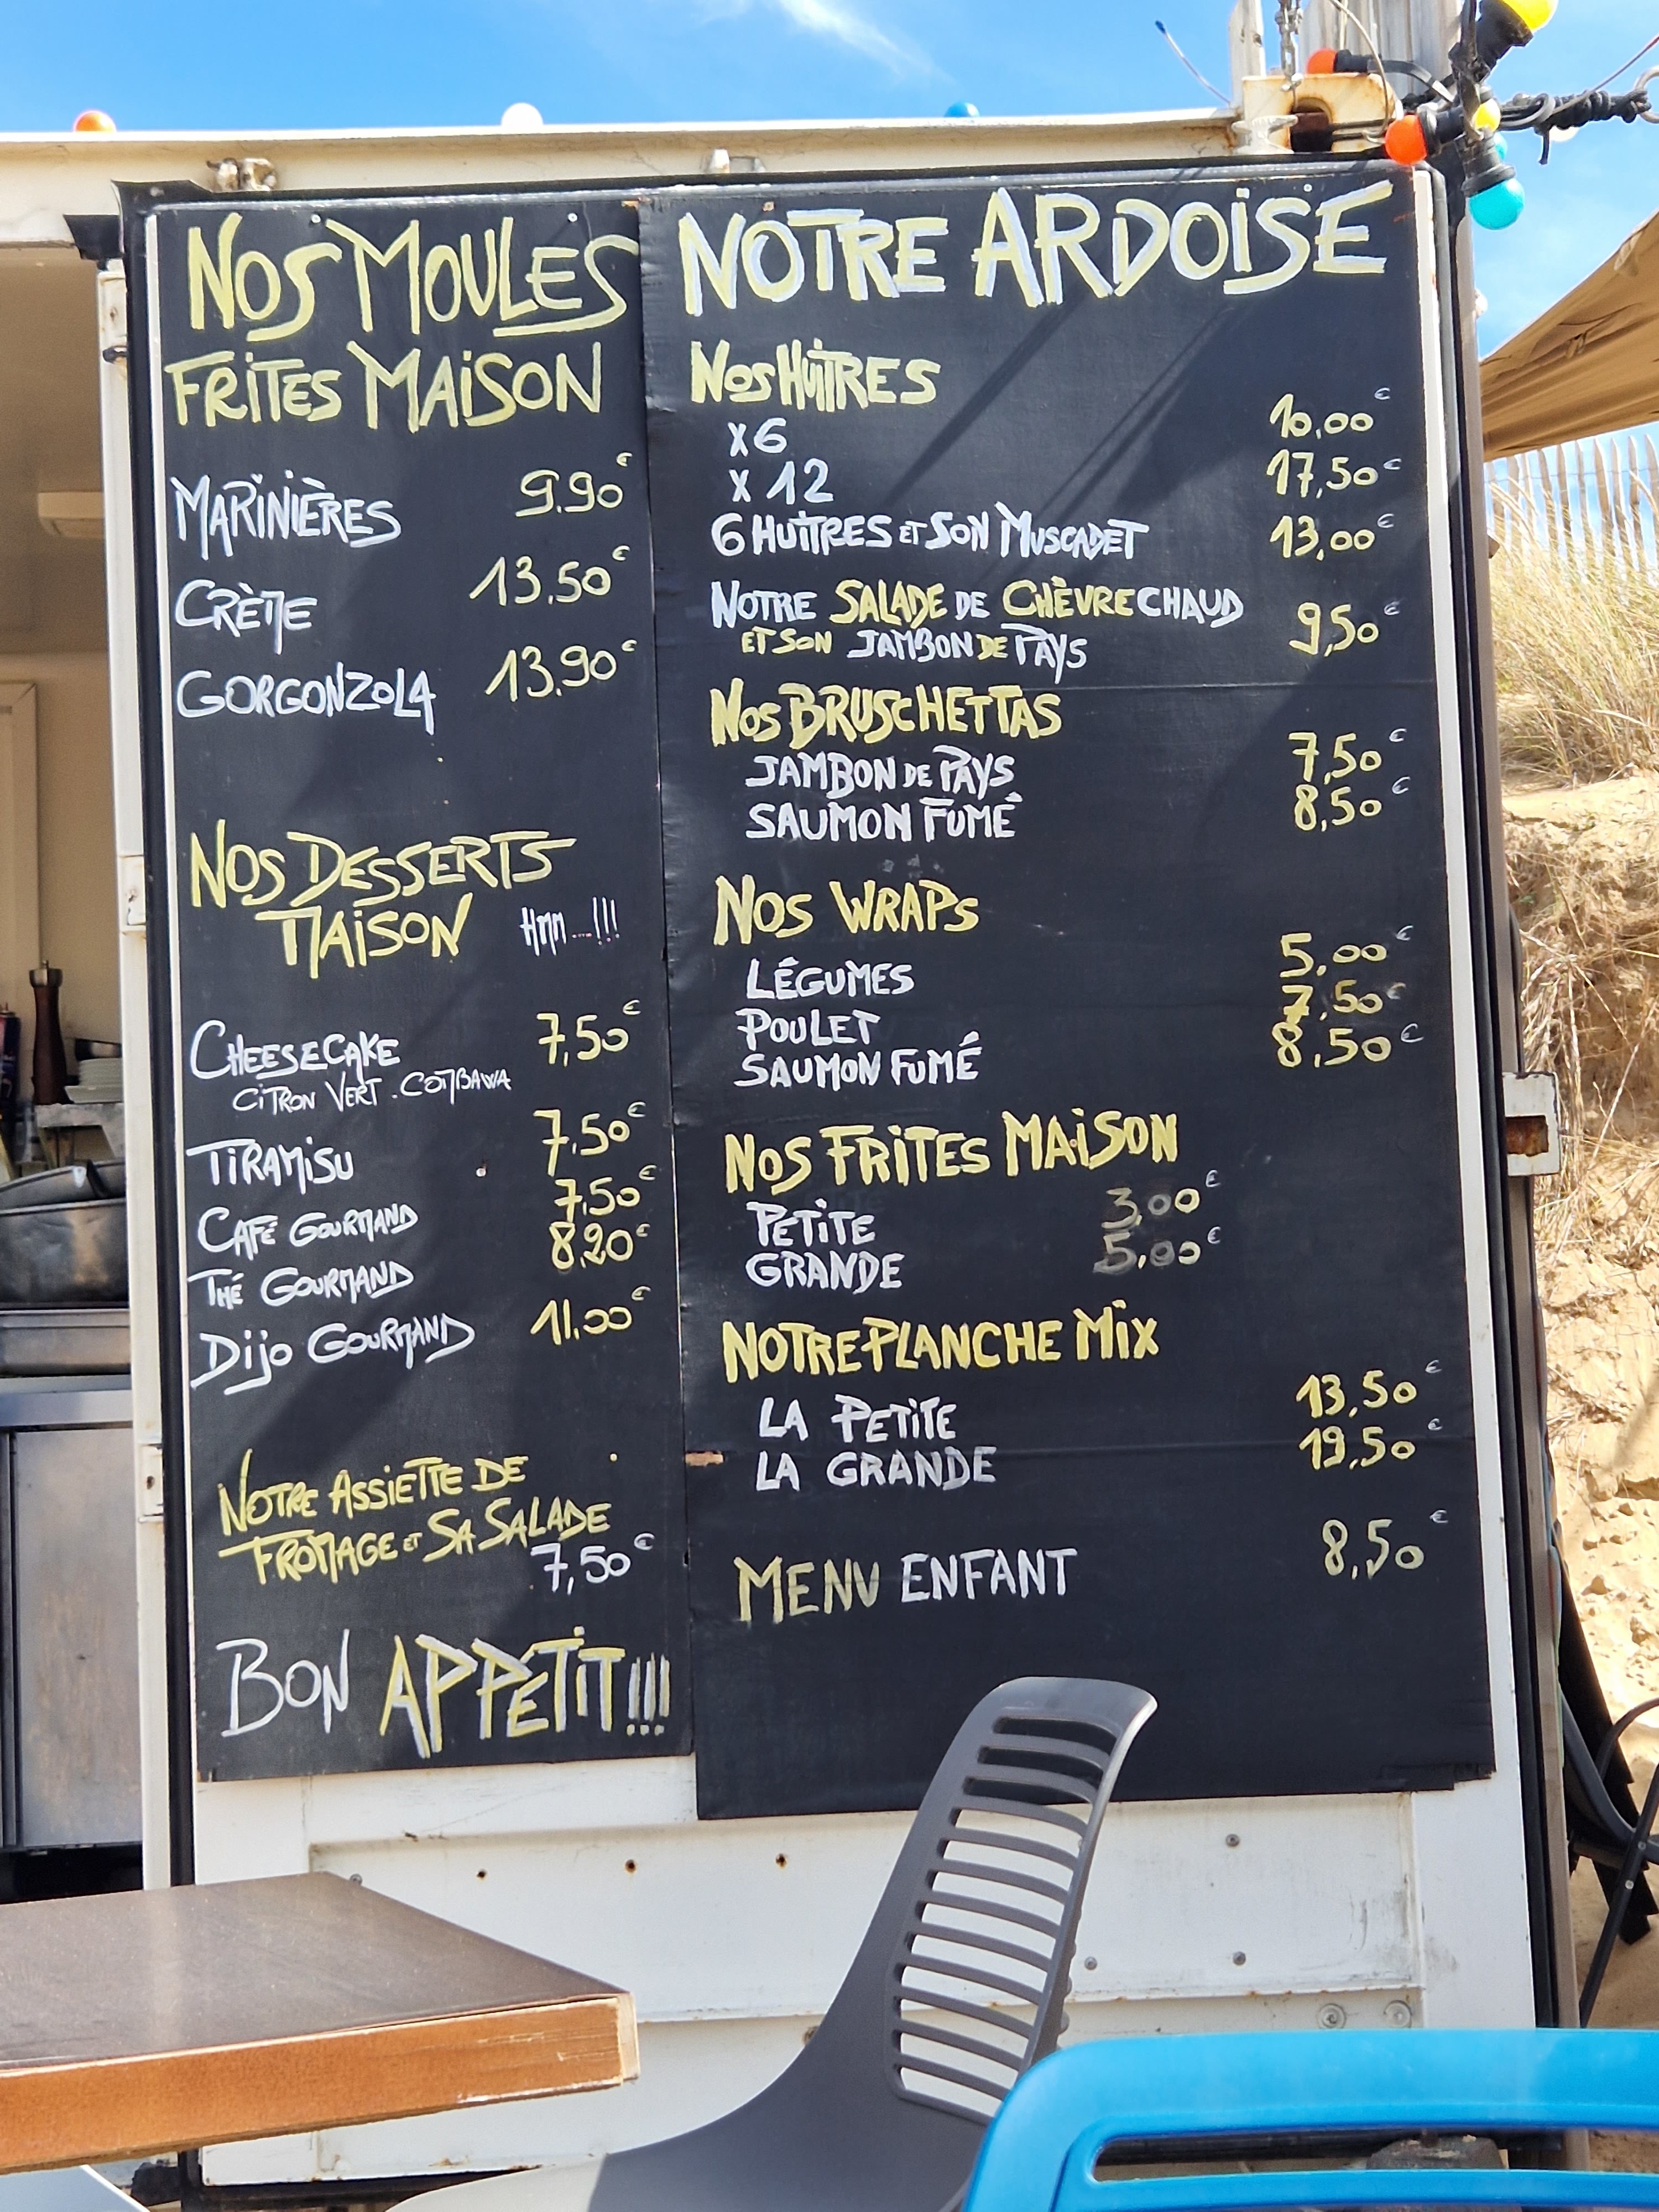 NOS MOULES
FRITES MAISON
MARINIÈRES 9.90€
CRÈME 13.50€
GORGONZOLA 13.90€
NOS DESSERTS
MAISON HMM...!!!
CHEESECAKE 7,50€
CITRON VERT. COMBAWA
TIRAMISU 7,50€
CAFÉ GOURMAND 7,50€
THÉ GOURMAND 8,20€
DIJO GOURMAND 11,00€
NOTRE ASSIETTE DE
FROMAGE ET SA SALADE
7,50€
BON APPÉTIT!!!
NOTRE ARDOISE
NOS HUITRES
X 6 10,00€
X 12 17,50€
6 HUITRES ET SON MUSCADET 13,00€
NOTRE SALADE DE CHÈVRE CHAUD
ET SON JAMBON DE PAYS 9,50€
NOS BRUSCHETTAS
JAMBON DE PAYS 7,50€
SAUMON FUMÉ 8,50€
NOS WRAPS
LÉGUMES 5,00€
POULET 7,50€
SAUMON FUMÉ 8,50€
NOS FRITES MAISON
PETITE 3,00€
GRANDE 5,00€
NOTRE PLANCHE MIX
LA PETITE 13,50€
LA GRANDE 19,50€
MENU ENFANT 8,50€